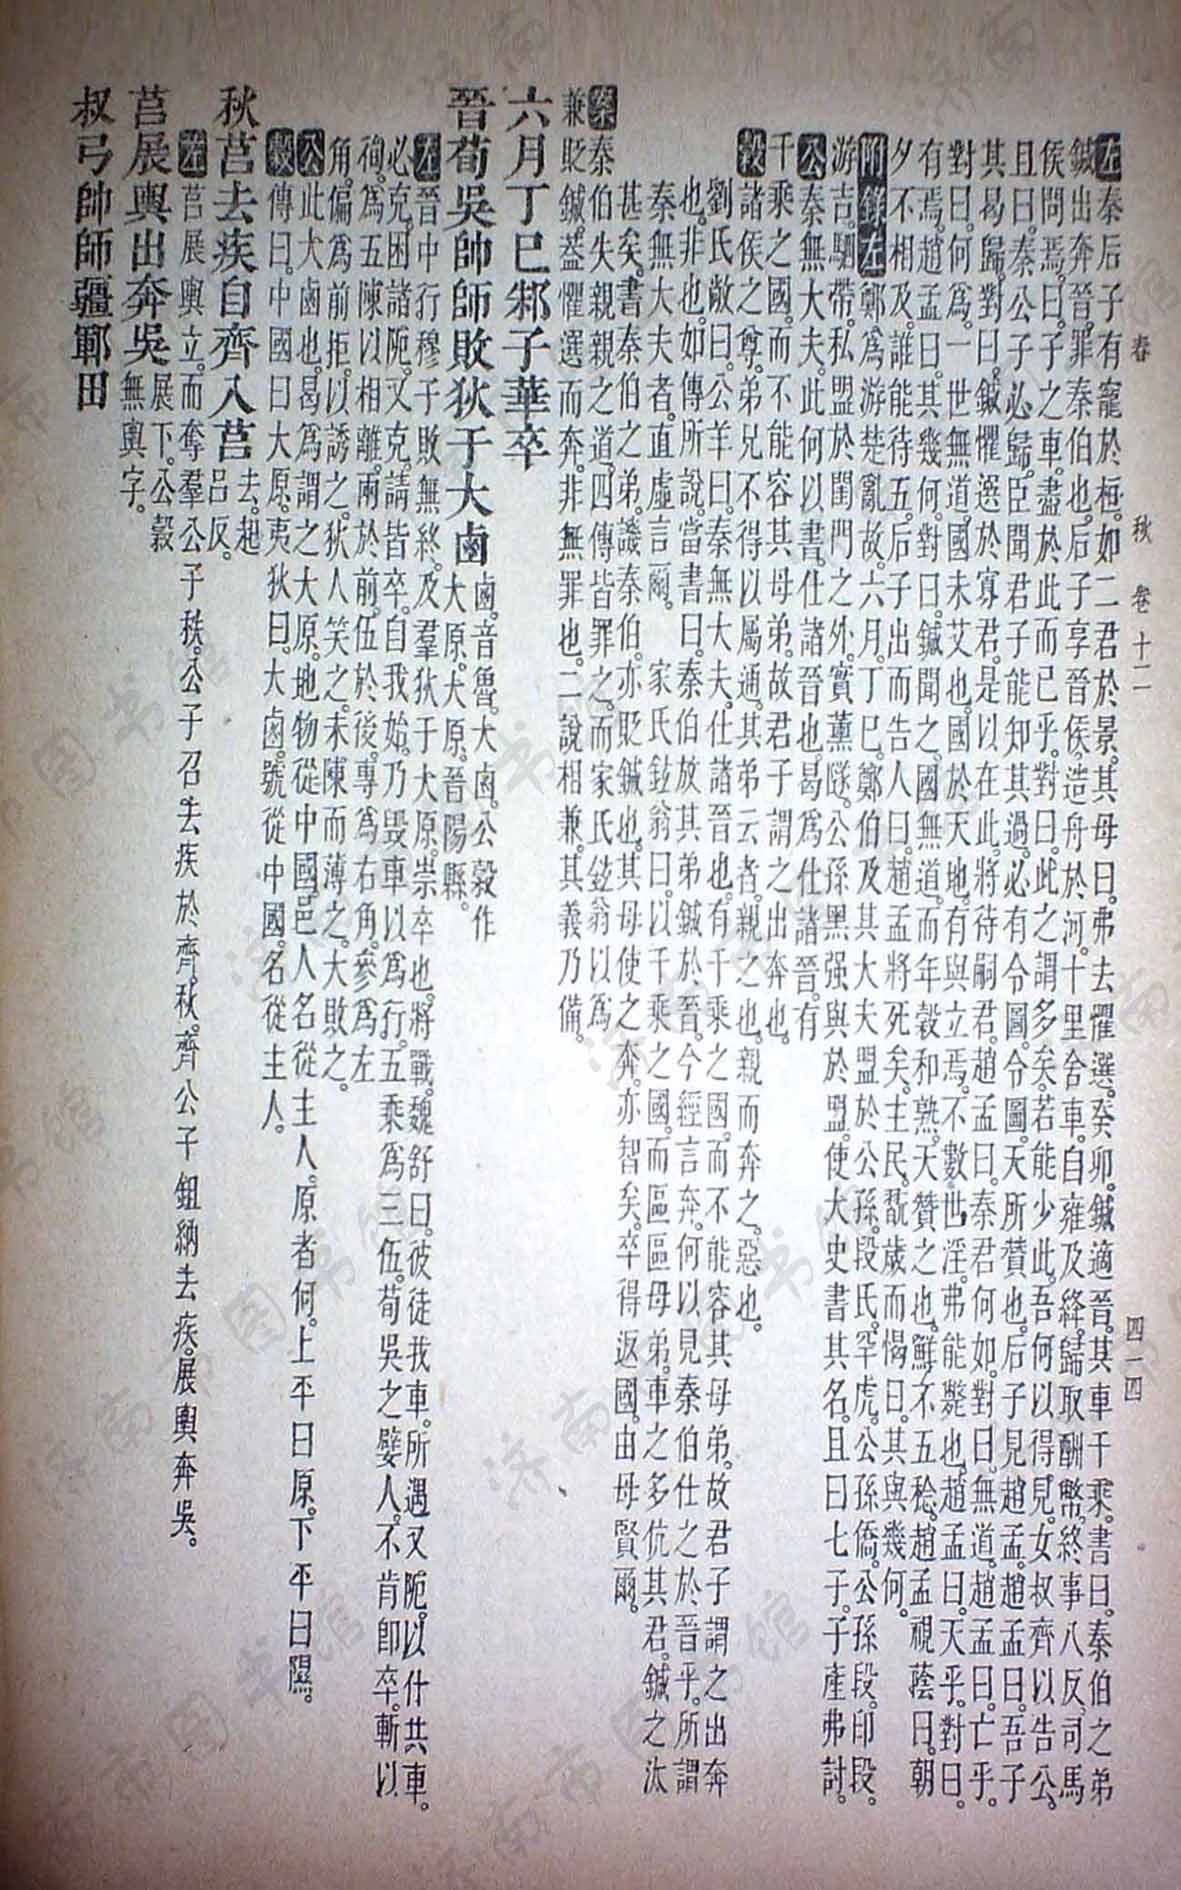 春　秋　卷十二　四一四
左秦后子有寵於桓。如二君於景。其母曰。弗去懼選。癸卯。鍼適晉。其車千乘。書曰。秦伯之弟
鍼出奔晉。罪秦伯也。后子享晉侯。造舟於河。十里舍車。自雍及絳。歸取酬幣。終事八反。司馬
侯問焉。曰。子之車。盡於此而已乎。對曰。此之謂多矣。若能少此。吾何以得見。女叔齊以告公。
且曰。秦公子必歸。臣聞君子能知其過。必有令圖。令圖。天所贊也。后子見趙孟。趙孟曰。吾子
其曷歸。對曰。鍼懼選於寡君。是以在此。將待嗣君。趙孟曰。秦君何如。對曰。無道。趙孟曰。亡乎。
對曰。何爲。一世無道。國未艾也。國於天地。有與立焉。不數世淫。弗能斃也。趙孟曰。天乎。對曰。
有焉。趙孟曰。其幾何。對曰。鍼聞之。國無道。而年穀和熟。天贊之也。鮮不五稔。趙孟視蔭曰。朝
夕不相及。誰能待五。后子出而告人曰。趙孟將死矣。主民。翫歲而愒日。其與幾何。
附錄左鄭爲游楚亂故。六月。丁巳。鄭伯及其大夫盟於公孫段氏。罕虎。公孫僑。公孫段。印段。
游吉。駟帶。私盟於閨門之外。實薰隧。公孫黑强與於盟。使大史書其名。且曰七子。子產弗討。
公秦無大夫。此何以書。仕諸晉也。曷爲仕諸晉。有
千乘之國。而不能容其母弟。故君子謂之出奔也。
穀諸侯之尊。弟兄不得以屬通。其弟云者。親之也。親而奔之。惡也。
劉氏敞曰。公羊曰。秦無大夫。仕諸晉也。有千乘之國。而不能容其母弟。故君子謂之出奔
也。非也。如傳所說。當書曰。秦伯放其弟鍼於晉。今經言奔。何以見秦伯仕之於晉乎。所謂
秦無大夫者。直虛言爾。　家氏鉉翁曰。以千乘之國。而區區母弟。車之多伉其君。鍼之汰
甚矣。書秦伯之弟。譏秦伯。亦貶鍼也。其母使之奔。亦智矣。卒得返國。由母賢爾。
案秦伯失親親之道。四傳皆罪之。而家氏鉉翁以爲
兼貶鍼。葢懼選而奔。非無罪也。二說相兼。其義乃備。
六月丁巳邾子華卒
晉荀吳帥師敗狄于大鹵 鹵。音魯。大鹵。公穀作
大原。大原。晉陽縣。
左晉中行穆子敗無終。及羣狄于大原。崇卒也。將戰。魏舒曰。彼徒我車。所遇又阨。以什共車。
必克。困諸阨。又克。請皆卒。自我始。乃毀車以爲行。五乘爲三伍。荀吳之嬖人。不肯卽卒。斬以
徇。爲五陳以相離。兩於前。伍於後。專爲右角。參爲左
角。偏爲前拒。以誘之。狄人笑之。未陳而薄之。大敗之。
公此大鹵也。曷爲謂之大原。地物從中國。邑人名從主人。原者何。上平曰原。下平曰隰。
穀傳曰。中國曰大原。夷狄曰。大鹵。號從中國。名從主人。
秋莒去疾自齊入莒 去。起
呂反。
左莒展輿立。而奪羣公子秩。公子召去疾於齊。秋。齊公子鉏納去疾。展輿奔吳。
莒展輿出奔吳 展下。公穀
無輿字。
叔弓帥師疆鄆田